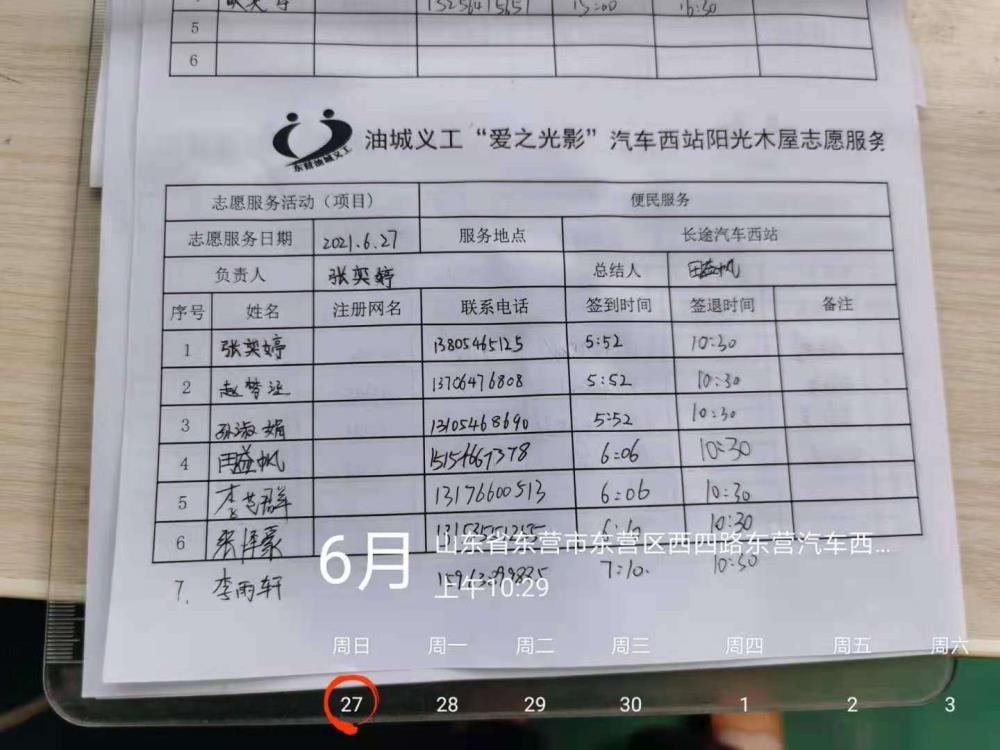 5
6
东营油城义工
油城义工“爱之光影”汽车西站阳光木屋志愿服务
志愿服务活动（项目） 便民服务
志愿服务日期 2021.6.27 服务地点 长途汽车西站
负责人 张奕婷 总结人 田益帆
序号 姓名 注册网名 联系电话 签到时间 签退时间 备注
1 张奕婷 13805465125 5:52 10:30
2 赵梦 13706476808 5:52 10:30
3 孙淑娟 13105468690 5:52 10:30
4 田益帆 15154667378 6:06 10:30
5 李艺群 13176600513 6:06 10:30
6 10:30
7. 李雨轩 7:10. 10:30
6月
山东省东营市东营区西四路东营汽车西...
上午10:29
周日 周一 周二 周三 周四 周五 周六
27 28 29 30 1 2 3